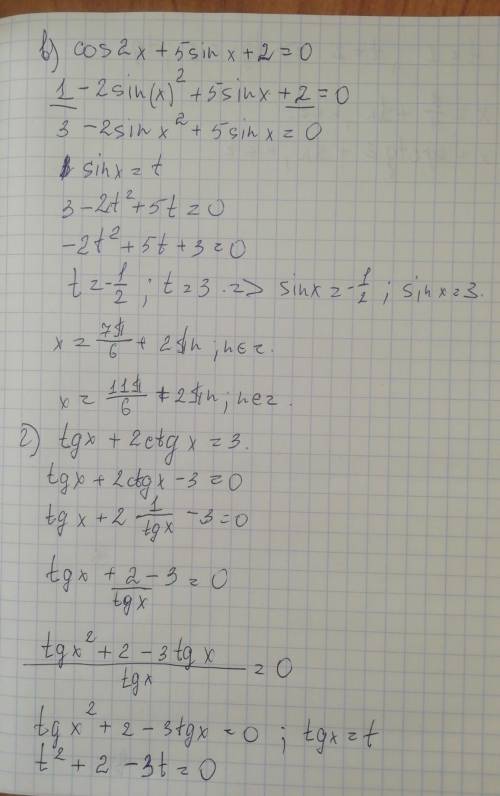 в) cos2x + 5sinx + 2 = 0
1 - 2sin(x)² + 5sinx + 2 = 0
3 - 2sinx² + 5sinx = 0
sinx = t
3 - 2t² + 5t = 0
-2t² + 5t + 3 = 0
t = -1/2 ; t = 3 => sinx = -1/2 ; sinx = 3.
x = 7π/6 + 2πn ; n∈z.
x = 11π/6 + 2πn ; n∈z.
г) tgx + 2ctgx = 3.
tgx + 2ctgx - 3 = 0
tgx + 2 1/tgx - 3 = 0
tgx + 2/tgx - 3 = 0
(tgx² + 2 - 3tgx)/tgx = 0
tgx² + 2 - 3tgx = 0 ; tgx = t
t² + 2 - 3t = 0